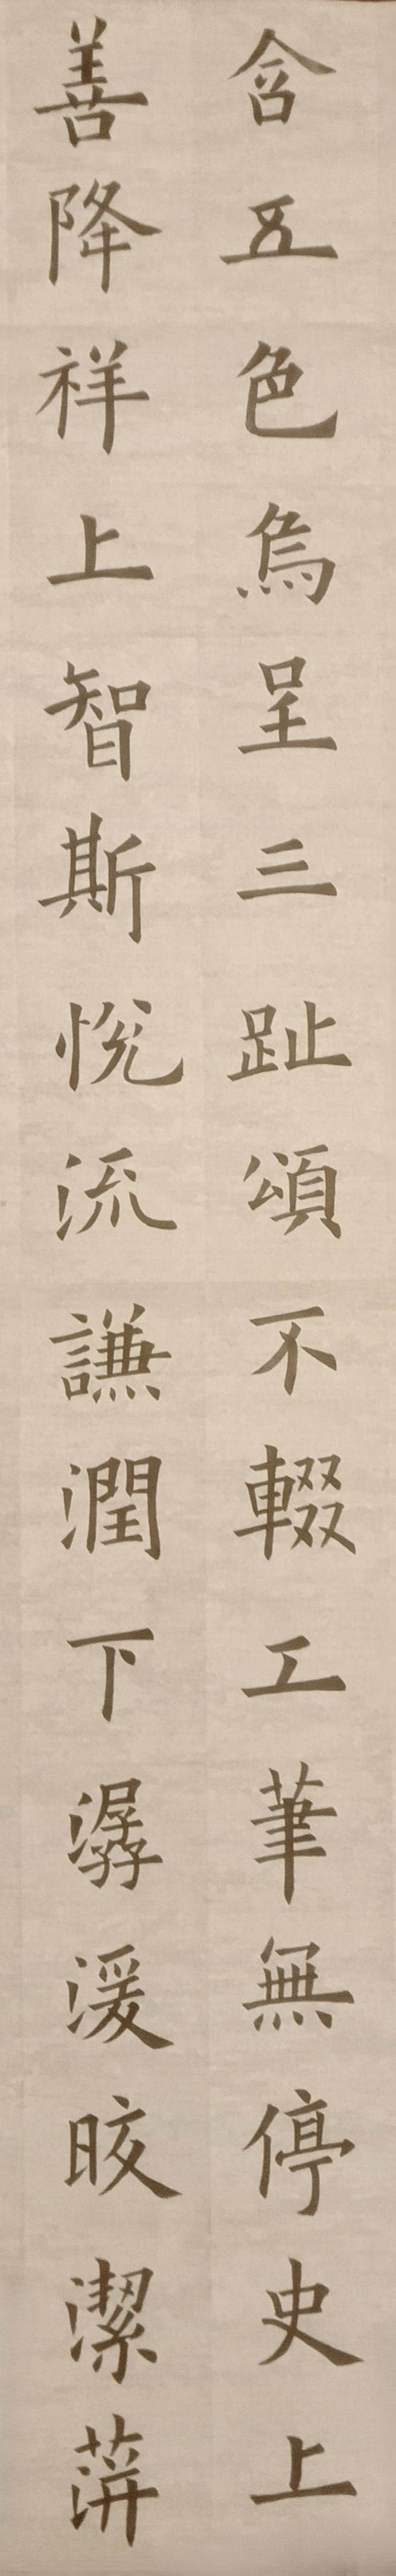 含五色烏呈三趾頌不輟工筆無停史上
善降祥上智斯悅流謙潤下潺湲皎潔蓱